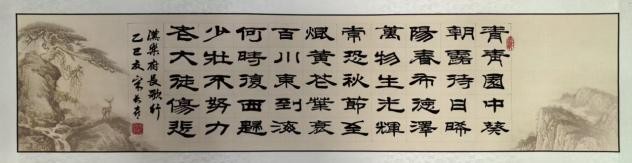 青青園中葵
朝露待日晞
陽春布德澤
萬物生光輝
常恐秋節至
焜黃花葉衰
百川東到海
何時復西歸
少壯不努力
老大徒傷悲
漢樂府長歌行
乙巳